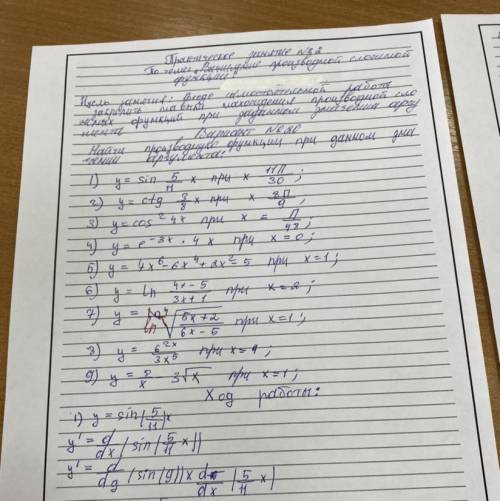 Практическое занятие №32
По теме: Вычисление производной сложной
функции
Цель занятия: в ходе самостоятельной работы
закрепить навыки нахождения производной сло
жных функций при заданном значении аргу
мента
Вариант №20
Найти производную функции при данном зна
чении аргумента:
1) y = sin 5/11 x при x 11π/30;
2) y = ctg 3/8 x при x 8π/9;
3) y = cos² 4x при x = π/48;
4) y = e^-3x · 4x при x = 0;
5) y = 4x⁶ - 6x⁴ + 2x² - 5 при x = 1;
6) y = ln (4x - 5)/(3x + 1) при x = 2;
7) y = ln ⁴√((5x + 2)/(6x - 5)) при x = 1;
8) y = 6^2x/3x⁵ при x = 1;
9) y = 2/x 3√x при x = 1;
Ход работы:
1) y = sin(5/11)x
y' = d/dx (sin(5/11 x))
y' = d/dg (sin(g)) x d/dx (5/11 x)